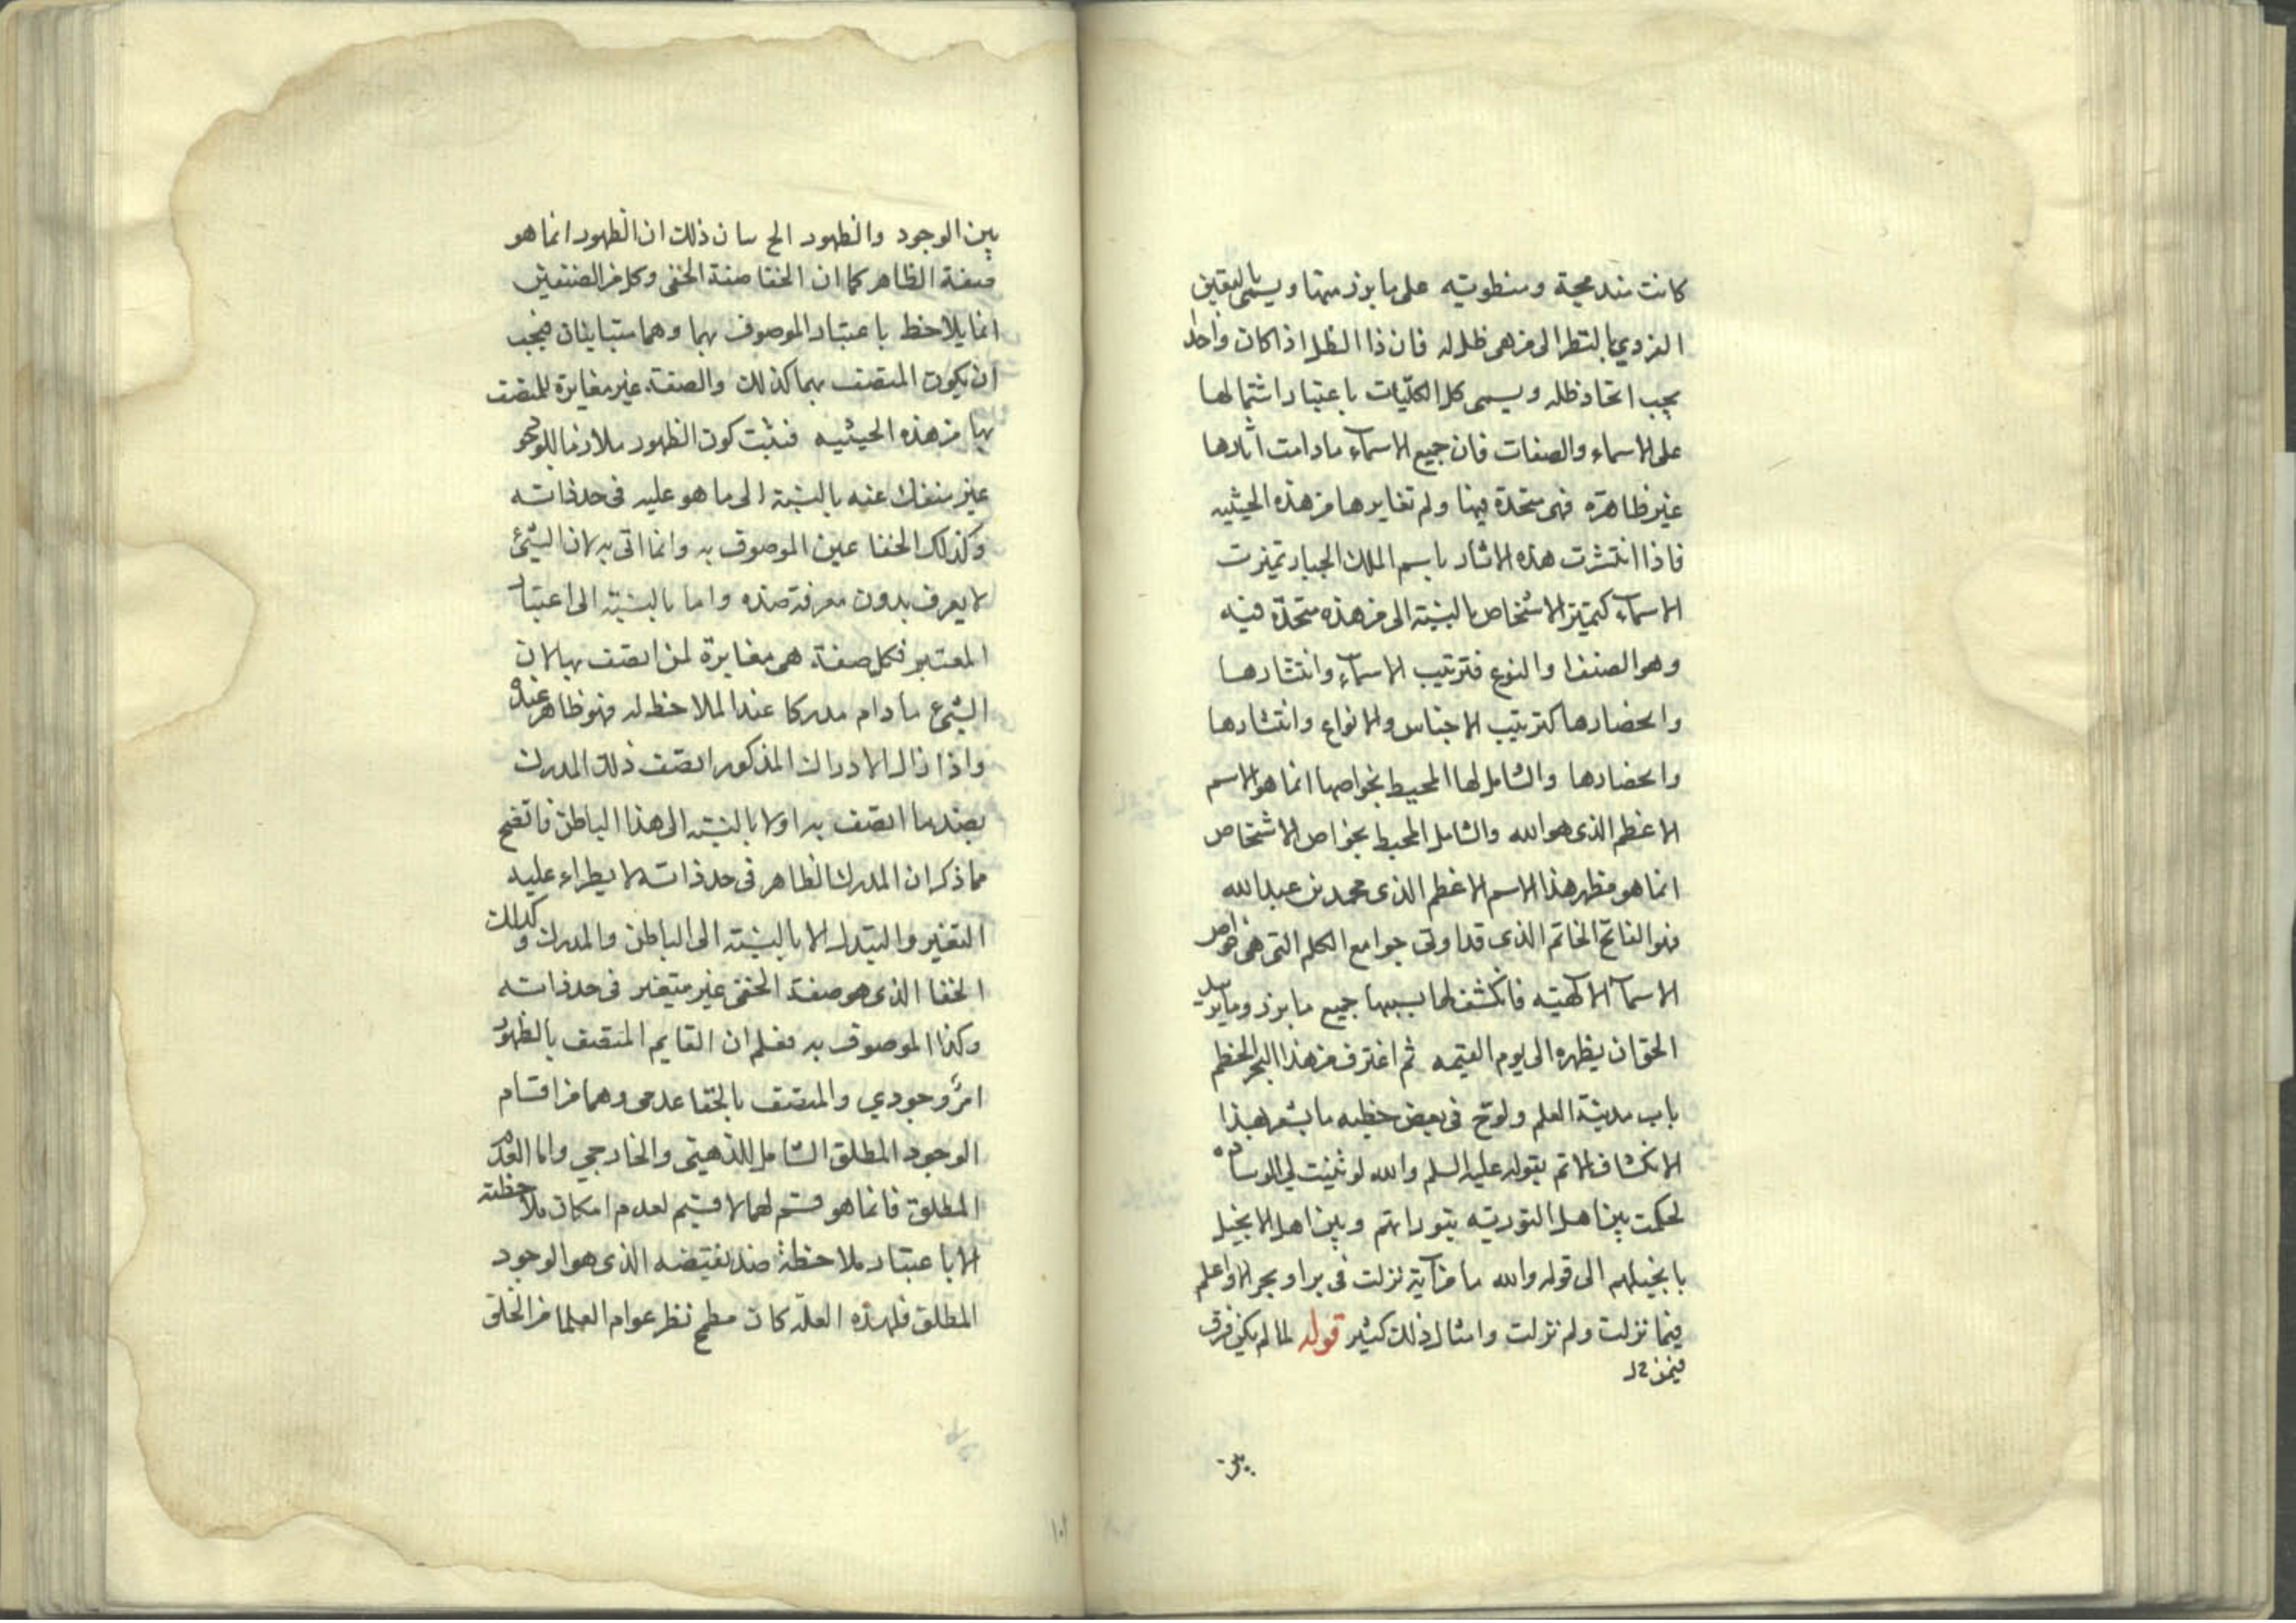 كانت مندمجة ومنطويه على ما برز منها ويسمى بالتعين
الفردي بالنظر الى من هى ظل له فان ذا الظل اذا كان واحدا
يجب اتحاد ظله ويسمى كل الكليات باعتبار اشتمالها
على الاسماء والصفات فان جميع الاسمآء ما دامت اثارها
غير ظاهرة فهى متحدة فيها ولم تغايرها من هذه الحيثيه
فاذا انتشرت هذه الاثار باسم الملك الجبار تميزت
الاسمآء كتميز الاشخاص بالنسبة الى من هذه متحدة فيه
وهو الصنف او النوع فترتيب الاسمآء وانتشارها
وانحصارها كترتيب الاجناس والانواع وانتشارها
وانحصارها والشامل لها المحيط بخواصها انما هو الاسم
الاعظم الذى هو الله والشامل المحيط بخواص الاشخاص
انما هو مظهر هذا الاسم الاعظم الذى محمد بن عبد الله
فهو الفاتح الخاتم الذى قد اوتى جوامع الكلم التى هى خواص
الاسمآ الآلهية فانكشف لها بسببها جميع ما برز وما يريد
الحق ان يظهره الى يوم القيمه ثم اغترف من هذا البحر
باب مدينة العلم ولوح فى بعض خطبه ما يشعر بهذا
الانكشاف الاتم بقوله عليه السلم والله لو ثنيت لى الوساده
لحكمت بين اهل التوريه بتوراتهم وبين اهل الانجيل
بانجيلهم الى قوله والله ما من آية نزلت فى بر او بحر الا واعلم
فيما نزلت ولم نزلت وامثال ذلك كثير قوله لما لم يكن فرق
فيمن
بين
بين الوجود والظهور الخ بيان ذلك ان الظهور انما هو
صفة الظاهر كما ان الخفا صفة الخفى وكل من الصفتين
انما يلاحظ باعتبار الموصوف بهما وهما متباينان فيجب
ان يكون المتصف بهما كذلك والصفة غير مغايرة للمتصف
بها من هذه الحيثيه فثبت كون الظهور ملازما للوجود
غير منفك عنه بالنسبة الى ما هو عليه فى حد ذاته
وكذلك الخفا عين الموصوف به وانما اتى به لان الشئ
لا يعرف بدون معرفة ضده واما بالنسبة الى اعتبار
المعتبر فكل صفة هى مغايرة لمن اتصف بها لان
الشئ ما دام مدركا عند الملاحظ له فهو ظاهر عنده
واذا زال الادراك المذكور اتصف ذلك المدرك
بضد ما اتصف به اولا بالنسبة الى هذا الباطن فاتضح
مما ذكر ان المدرك الظاهر فى حد ذاته لا يطراء عليه
التغير والتبدل الا بالنسبة الى الباطن والمدرك وكذلك
الخفا الذى هو صفة الخفى غير متغير فى حد ذاته
وكذا الموصوف به فعلم ان القايم المتصف بالظهور
امر وجودي والمتصف بالخفا عدمى وهما من اقسام
الوجود المطلق الشامل للذهنى والخارجي واما العدم
المطلق فانما هو قسم لهما لا قسيم لعدم امكان ملاحظته
الا باعتبار ملاحظة ضد نقيضه الذى هو الوجود
المطلق فلهذه العلة كان مطمح نظر عوام العلما من الخلق
١٠١